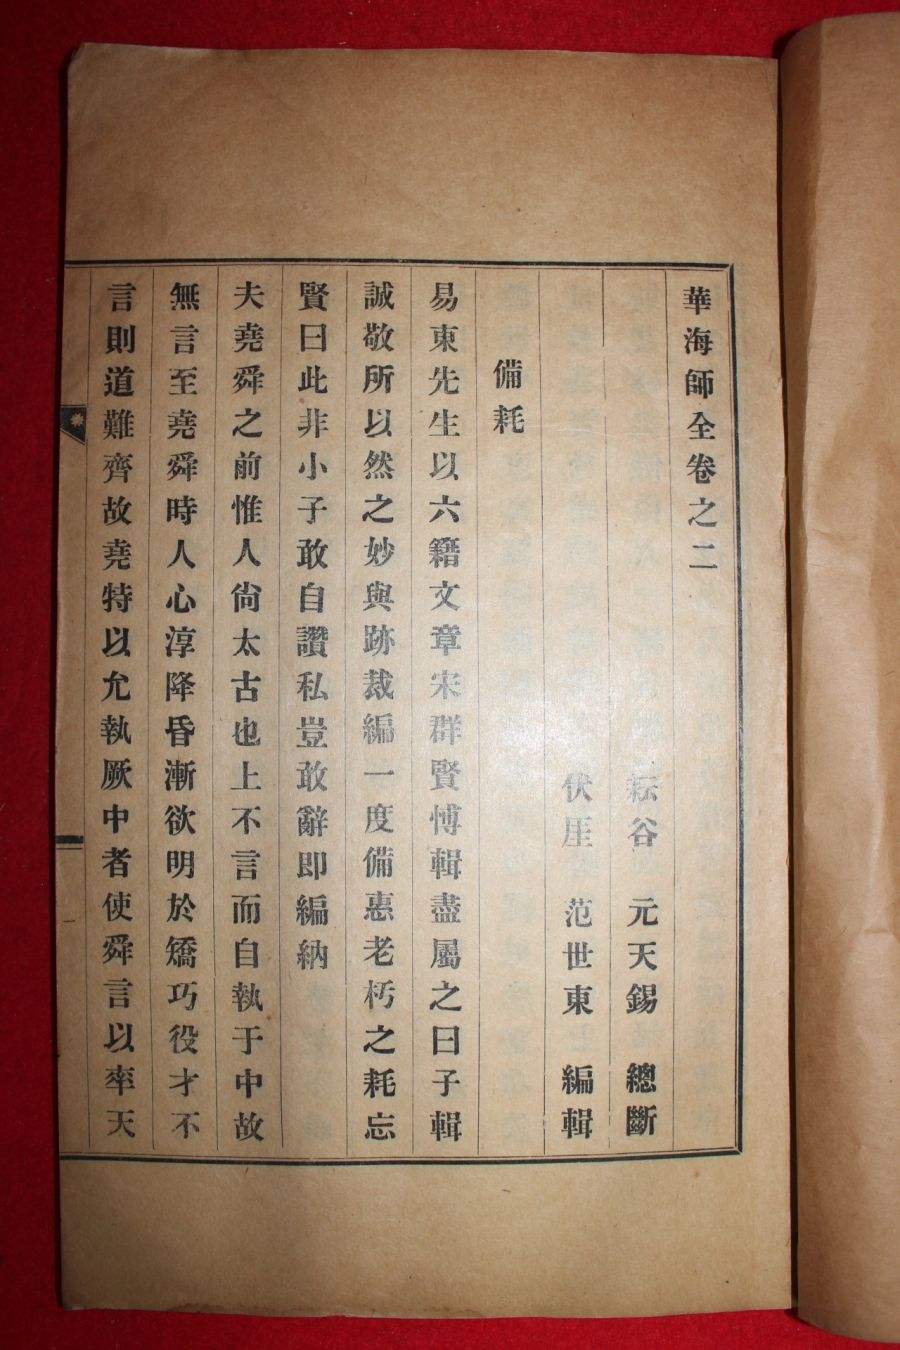 華海師全卷之二
耘谷 元天錫 總斷
伏厓 范世東 編輯
備耗
易東先生以六籍文章宋群賢愽輯盡屬之曰子輯
誠敬所以然之妙與跡裁編一度備惠老朽之耗忘
賢曰此非小子敢自讚私豈敢辭即編納
夫堯舜之前惟人尙太古也上不言而自執于中故
無言至堯舜時人心淳降昏漸欲明於矯巧役才不
言則道難齊故堯特以允執厥中者使舜言以率天